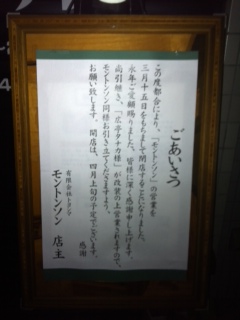 ごあいさつ
この度都合により、「モントンソン」の営業を
三月十五日をもちまして閉店することになりました。
永年ご愛顧賜りました。皆様に深く感謝申し上げます。
尚引継ぎ、「広亭タチカ様」が改装の上営業されますので、
モントンソン同様お引き立てくださいますよう、
お願い致します。開店は、四月上旬の予定でございます。
感謝
有限会社トタツ
モントンソン 店主